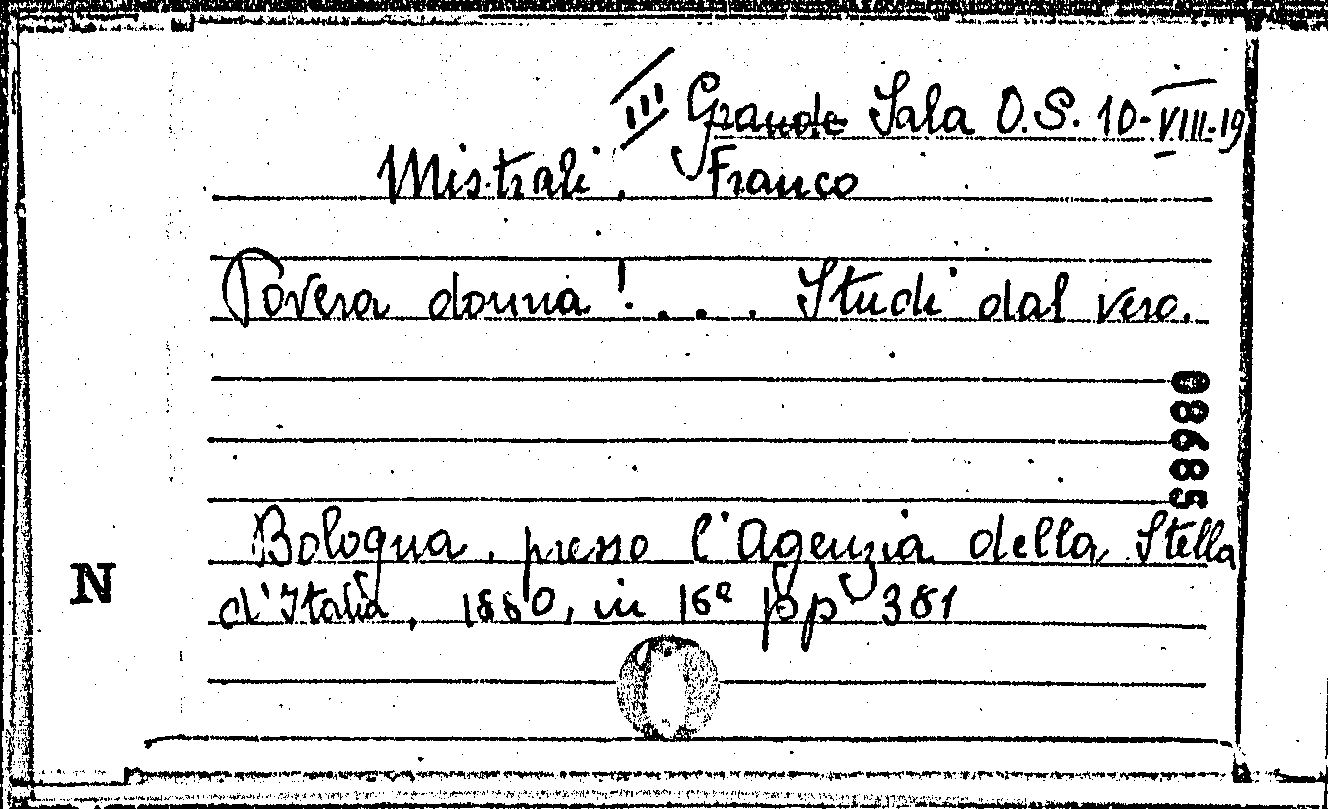 III Grande Sala O.S. 10-VIII-19
Mistrali, Franco
Povera donna!... Studi dal vero.
08685
Bologna, presso l'Agenzia della Stella
N
d'Italia, 1880, in 16º pp 381